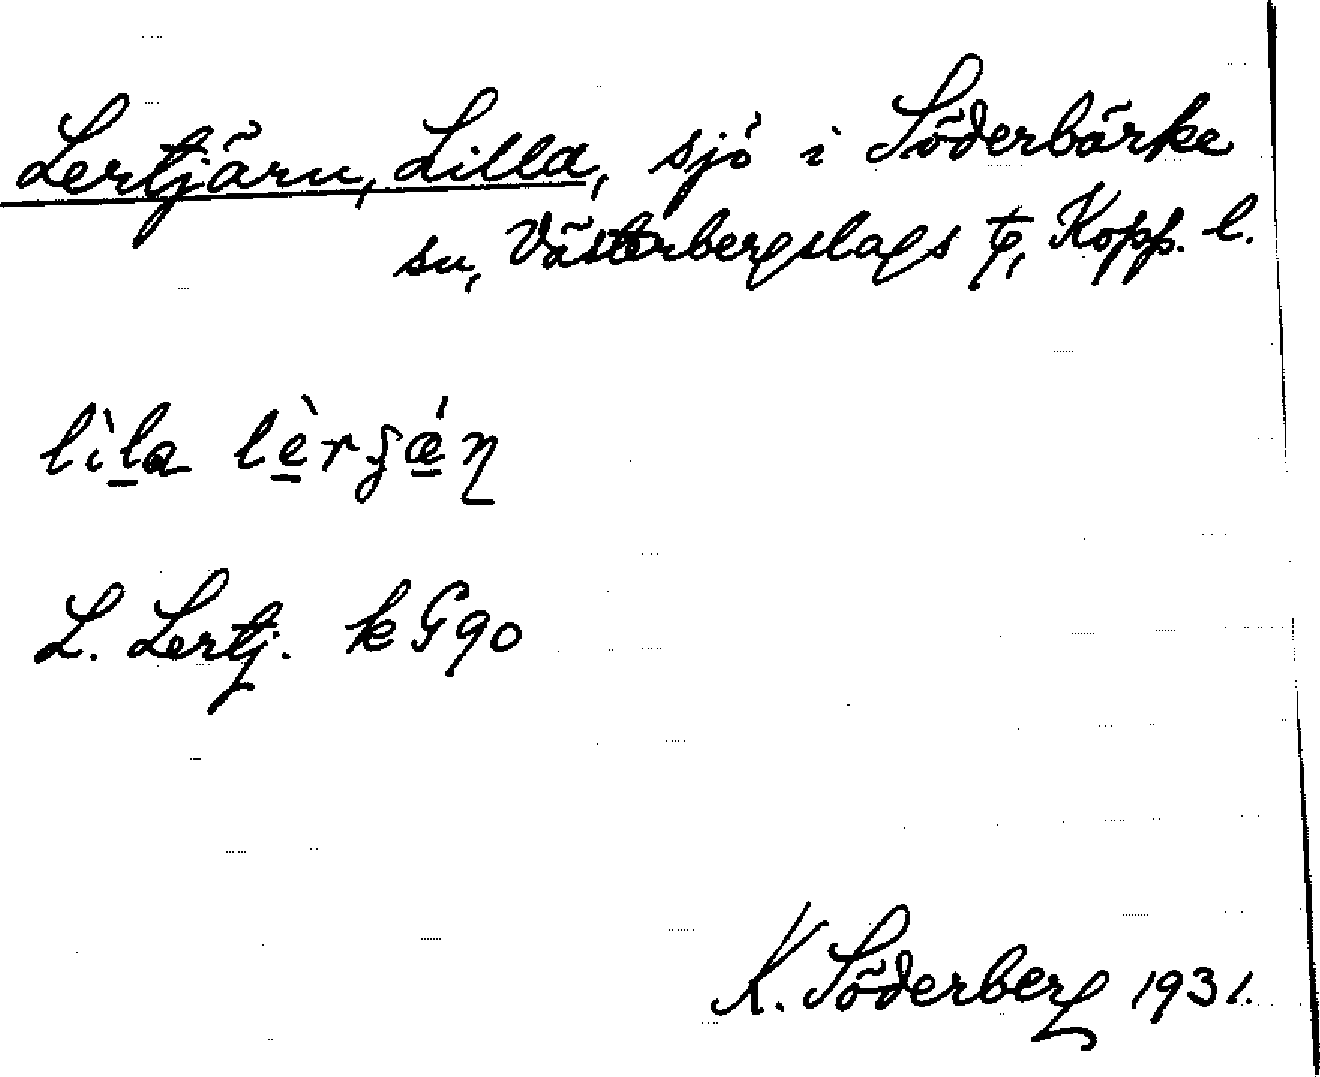 Lertjärn, Lilla, sjö i Söderbärke
sn, Västerbergslags t, Kopp. l.
lìla lèrʒǽn
L. Lertj. kG90
K. Söderberg 1931.